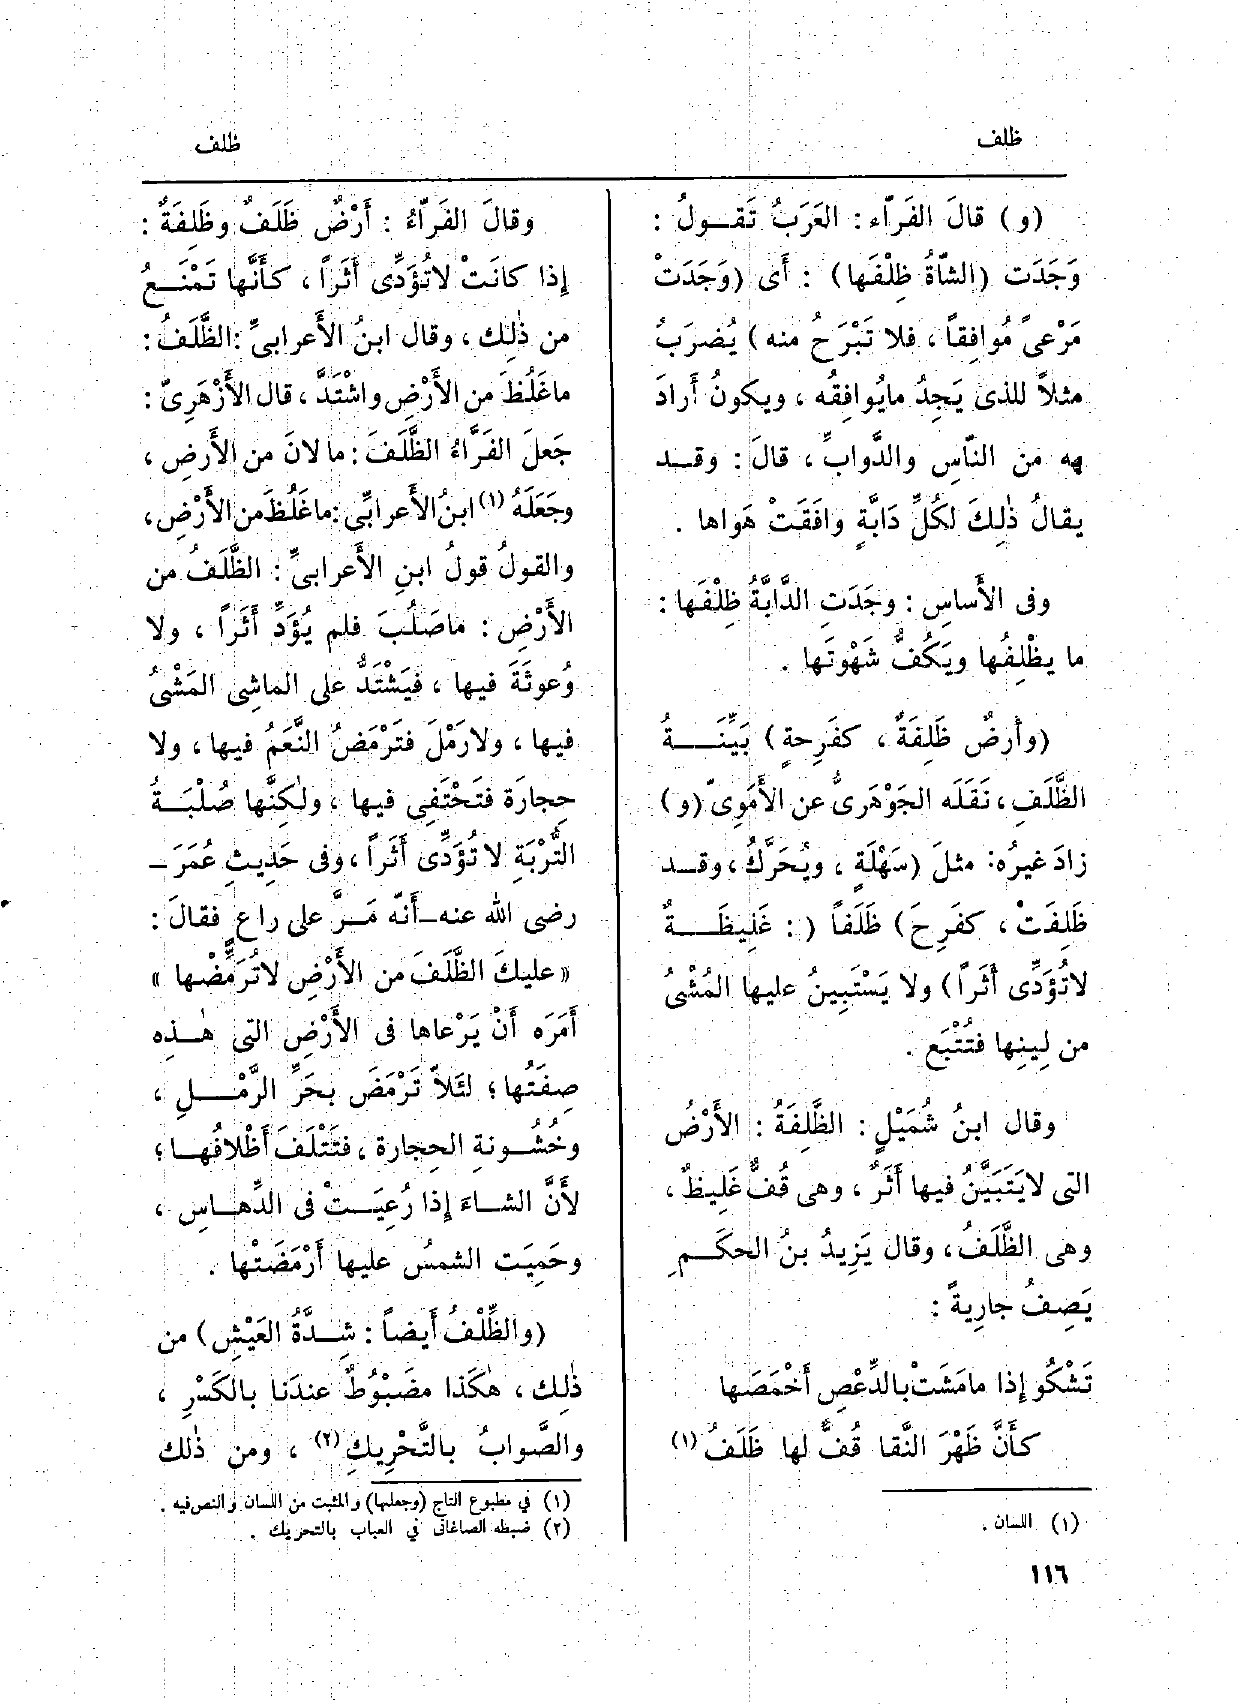 ظلف
ظلف
(و) قالَ الفَرّاء : العَرَبُ تَقــولُ :
وَجَدَت (الشّاةُ ظِلْفَها) : أَى (وَجَدَتْ
مَرْعىً مُوافِقاً ، فلا تَبْرَحُ منه) يُضرَبُ
مثلاً للذى يَجِدُ مايُوافِقُه ، ويكونُ أَرادَ
به من النّاسِ والدَّوابِّ ، قالَ : وقـد
يقالُ ذٰلِكَ لكُلِّ دَابَّةٍ وافَقَتْ هَواها .
وفى الأَساسِ : وجَدَتِ الدَّابَّةُ ظِلْفَها :
ما يظْلِفُها ويَكُفُّ شَهْوتَها .
(وأَرضٌ ظَلِفَةٌ ، كفَرِحةٍ) بَيِّنَــةُ
الظَّلَفِ ، نَقَلَه الجَوْهَرىُّ عن الأُمَوِىّ (و)
زادَ غيرُه: مثلَ (سَهْلَةٍ ، ويُحَرَّكُ ، وقــد
ظَلِفَتْ ، كفَرِحَ) ظَلَفاً (: غَلِيظَــةٌ
لاتُؤَدِّى أَثَراً) ولا يَسْتَبِينُ عليها المُشْىُ
من لِينِها فتُتْبَع .
وقال ابنُ شُمَيْلٍ : الظَّلِفَةُ : الأَرْضُ
التى لايَتَبَيَّنُ فيها أَثَرٌ ، وهى قُفٌّ غَلِيظٌ ،
وهى الظَّلَفُ ، وقال يَزِيدُ بنُ الحكَـمِ
يَصِفُ جارِيةً :
تَشْكُو إِذا مامَشَتْ بالدِّعْصِ أَخْمَصَها
كأَنَّ ظَهْرَ النَّقا قُفٌّ لها ظَلَفُ (١)
(١) اللسان .
١١٦
وقالَ الفَرّاءُ : أَرْضٌ ظَلَفٌ وظَلِفَةٌ :
إِذا كانَتْ لاتُؤَدِّى أَثَراً ، كأَنَّها تَمْنَـعُ
من ذٰلِك ، وقال ابنُ الأَعرابىِّ : الظَّلَفُ :
ماغَلُظَ من الأَرْضِ واشْتَدَّ ، قال الأَزْهَرِىّ :
جَعلَ الفَرَّاءُ الظَّلَفَ : ما لانَ من الأَرضِ ،
وجَعَلَهُ (١) ابنُ الأَعرابِّى : ماغَلُظَ من الأَرْضِ ،
والقولُ قولُ ابنِ الأَعرابىِّ : الظَّلَفُ من
الأَرْضِ : ماصَلُبَ فلم يُؤَدِّ أَثَراً ، ولا
وُعوثَةَ فيها ، فيَشْتَدُّ على الماشِى المَشْىُ
فيها ، ولارَمْلَ فتَرْمَضُ النَّعَمُ فيها ، ولا
حِجارَة فتَحْتَفِى فيها ، ولٰكِنَّها صُلْبَــةُ
التُّرْبَةِ لا تُؤَدِّى أَثَراً ، وفى حَدِيثِ عُمَرَ –
رضى الله عنه – أَنّه مَــرَّ على راعٍ فقالَ :
« عليكَ الظَّلَفَ من الأَرْضِ لاتُرَمِّضْها »
أَمَرَه أَنْ يَرْعاها فى الأَرْضِ التى هٰــذِه
صِفَتُها ؛ لئَلاَّ تَرْمَضَ بحَرِّ الرَّمْــلِ ،
وخُشُـونةِ الحِجارة ، فتَتْلَفَ أَظْلافُهـا ؛
لأَنَّ الشـاءَ إِذا رُعِيَــتْ فى الدِّهـاسِ ،
وحَمِيَت الشمسُ عليها أَرْمَضَتْها .
(والظِّلْفُ أَيضاً : شِــدَّةُ العَيْشِ) من
ذٰلِك ، هٰكَذا مضَبْوُطٌ عندَنا بالكَسْرِ ،
والصَّوابُ بالتَّحْرِيكِ (٢) ، ومن ذٰلك
(١) في مطبوع التاج (وجعلها) والمثبت من اللسان والنص فيه .
(٢) ضبطه الصاغانى في العباب بالتحريك .